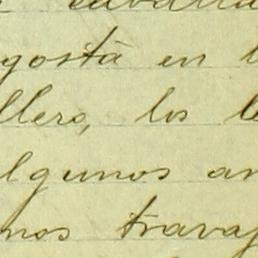 gosta en l
llero, los le
lgunos an
nos travaj